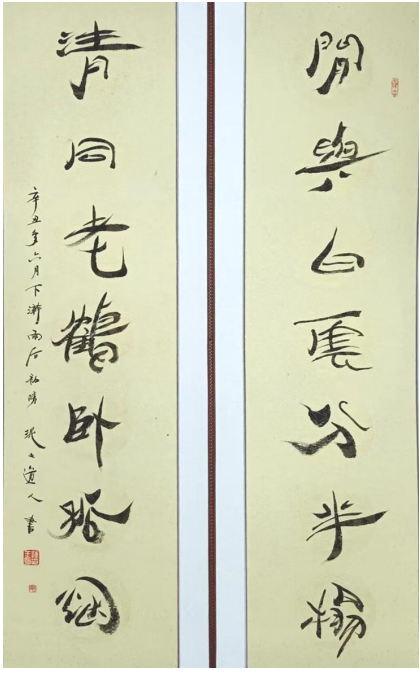 閒與白雲分半榻
清同老鶴卧
辛丑年六月下澣雨后初晴 道人書